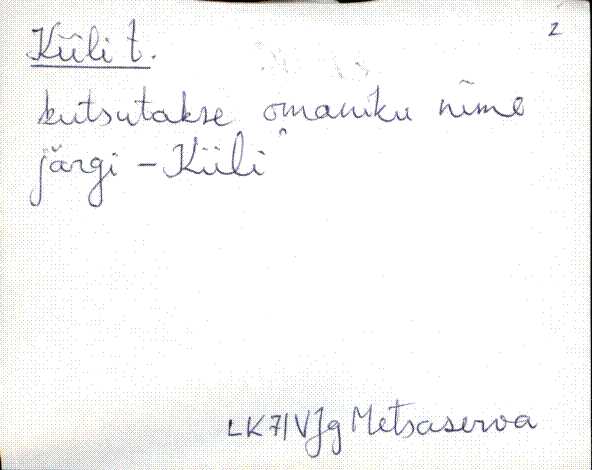 2
Kiili t.
kutsutakse omaniku nime
järgi - Kiili
LK71 VJg Metsaserva